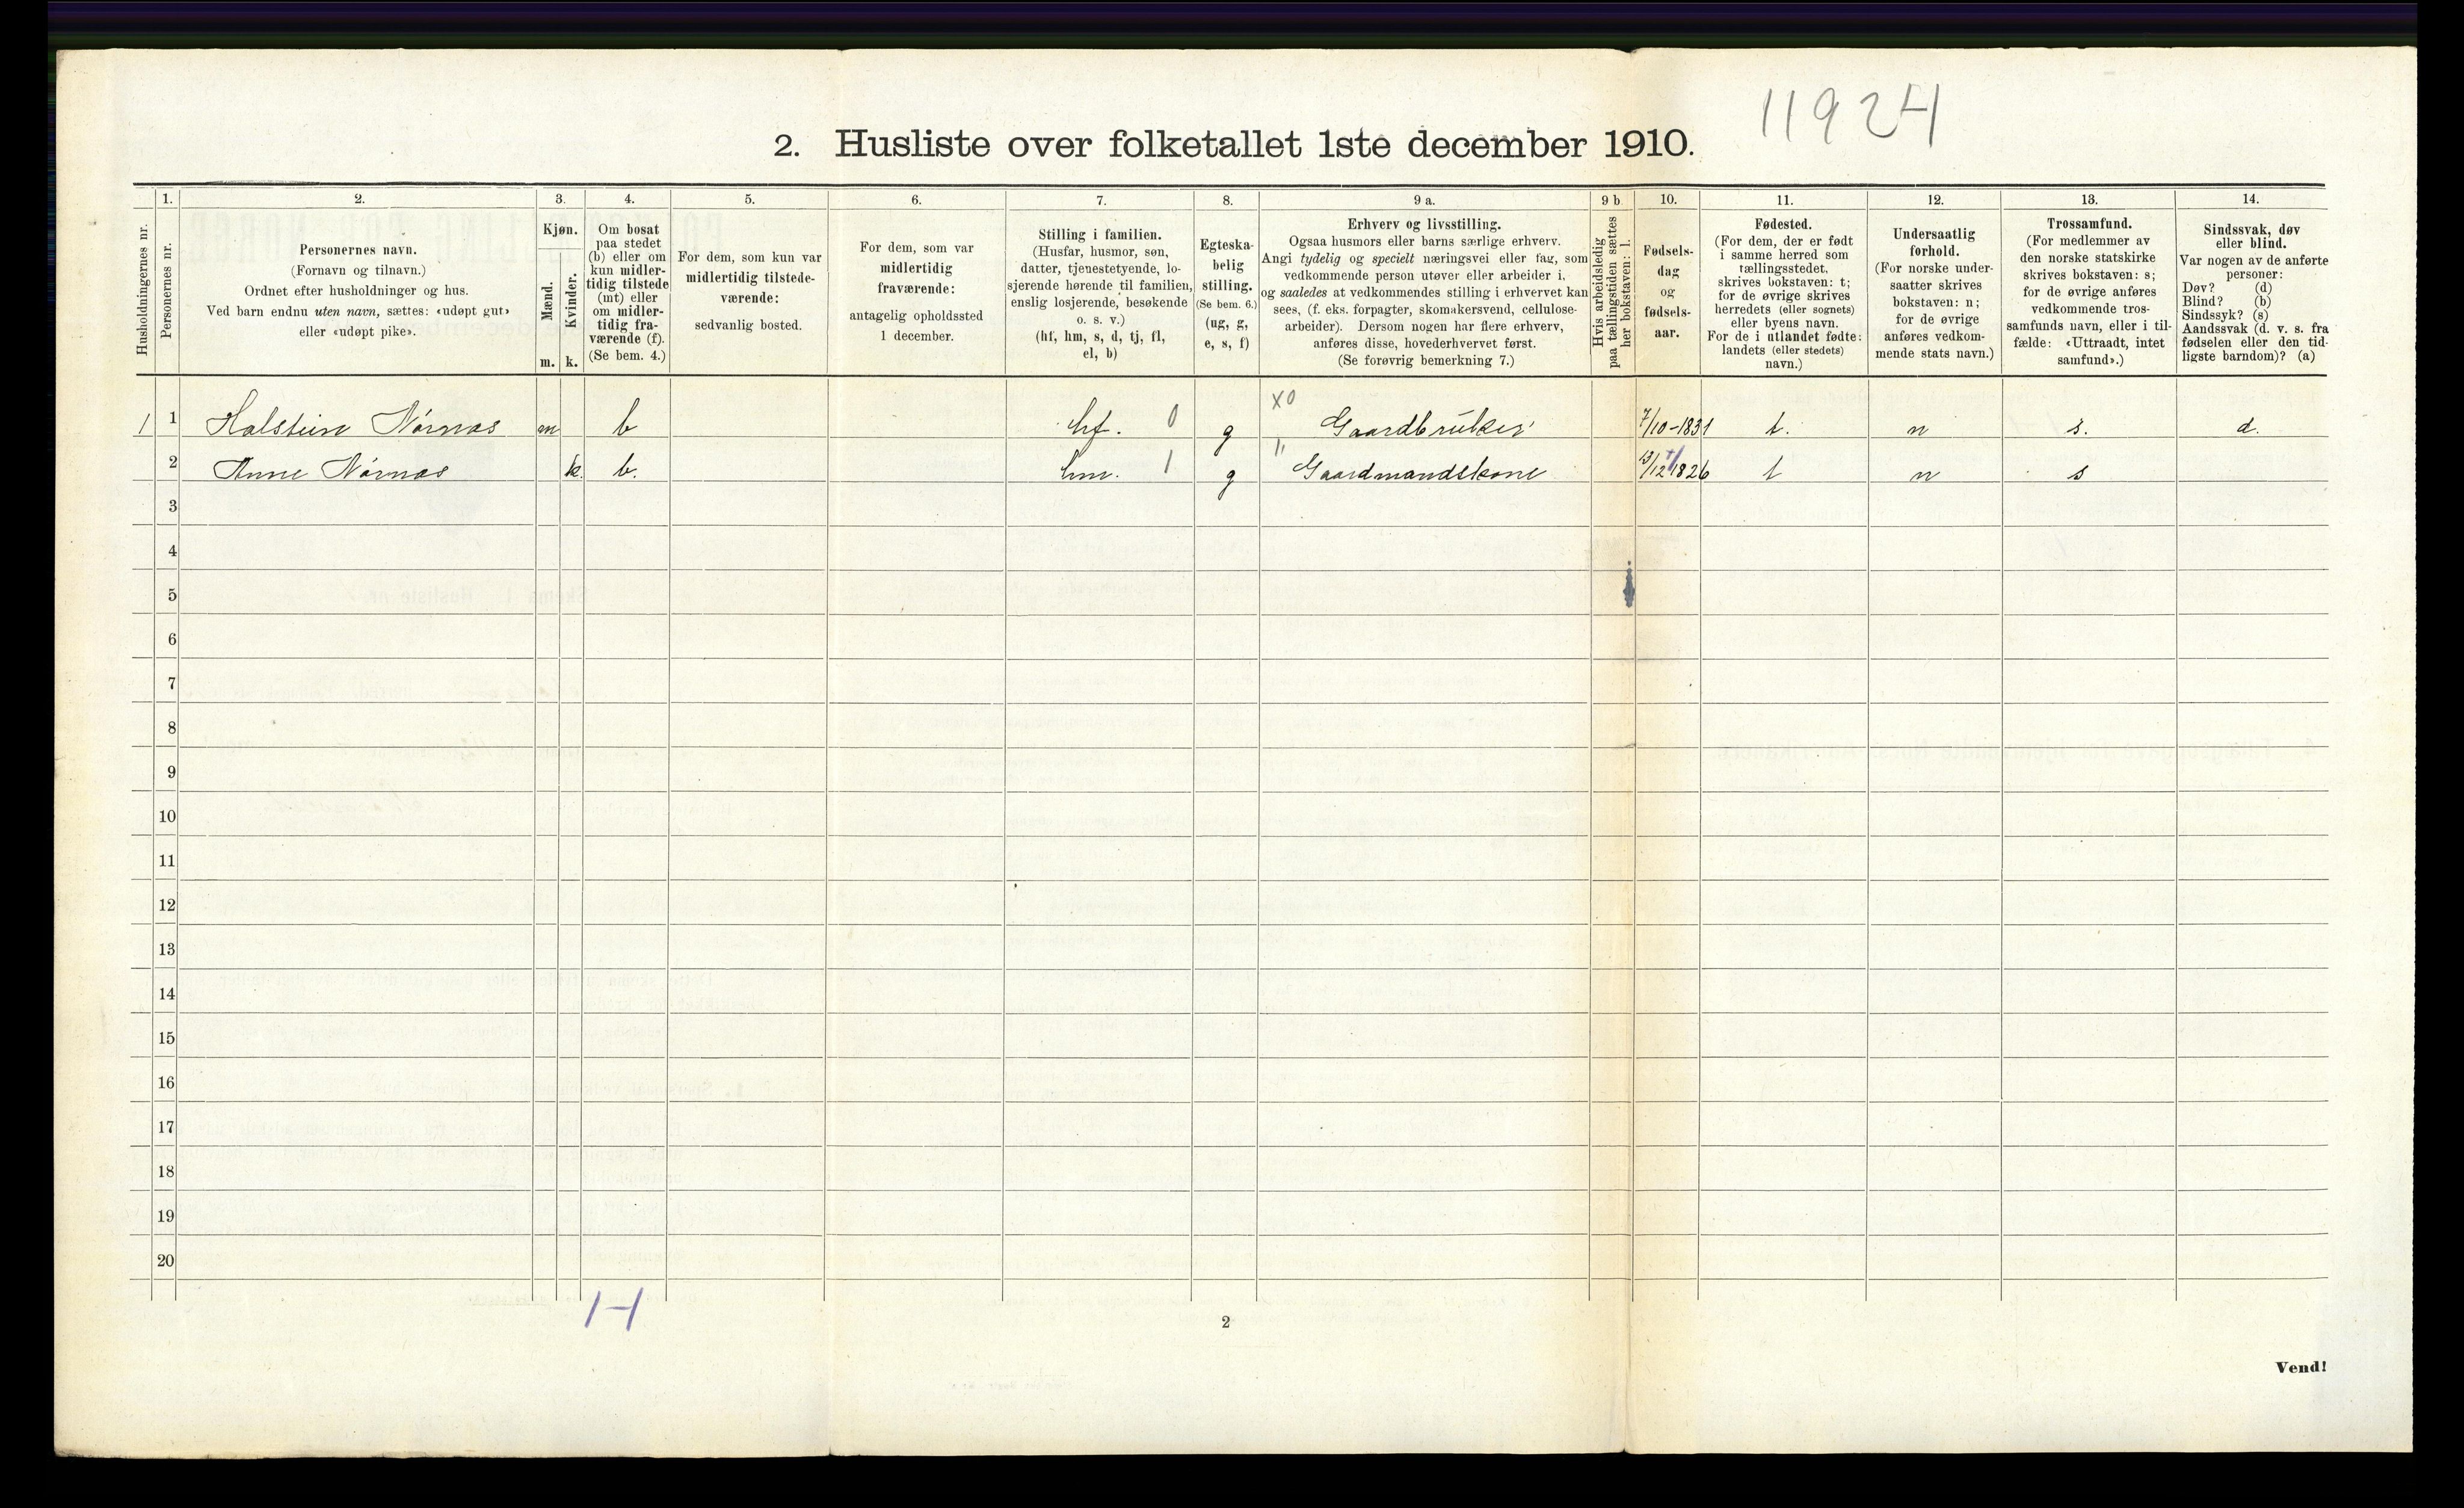 11924
2. Husliste over folketallet 1ste december 1910.
Husholdningernes nr.
1.
Personernes nr.
2.
Personernes navn.
(Fornavn og tilnavn.)
Ordnet efter husholdninger og hus.
Ved barn endnu uten navn, sættes: «udøpt gut»
eller «udøpt pike».
3.
Kjøn.
Mænd.
m.
Kvinder.
k.
4.
Om bosat
paa stedet
(b) eller om
kun midler-
tidig tilstede
(mt) eller
om midler-
tidig fra-
værende (f).
(Se bem. 4.)
5.
For dem, som kun var
midlertidig tilstede-
værende:
sedvanlig bosted.
6.
For dem, som var
midlertidig
fraværende:
antagelig opholdssted
1 december.
7.
Stilling i familien.
(Husfar, husmor, søn,
datter, tjenestetyende, lo-
sjerende hørende til familien,
enslig losjerende, besøkende
o. s. v.)
(hf, hm, s, d, tj, fl,
el, b)
8.
Egteska-
belig
stilling.
(Se bem. 6.)
(ug, g,
e, s, f)
9 a.
Erhverv og livsstilling.
Ogsaa husmors eller barns særlige erhverv.
Angi tydelig og specielt næringsvei eller fag, som
vedkommende person utøver eller arbeider i,
og saaledes at vedkommendes stilling i erhvervet kan
sees, (f. eks. forpagter, skomakersvend, cellulose-
arbeider). Dersom nogen har flere erhverv,
anføres disse, hovederhvervet først.
(Se forøvrig bemerkning 7.)
9 b
Hvis arbeidsledig
paa tællingstiden sættes
her bokstaven: l.
10.
Fødsels-
dag
og
fødsels-
aar.
11.
Fødested.
(For dem, der er født
i samme herred som
tællingsstedet,
skrives bokstaven: t;
for de øvrige skrives
herredets (eller sognets)
eller byens navn.
For de i utlandet fødte:
landets (eller stedets)
navn.)
12.
Undersaatlig
forhold.
(For norske under-
saatter skrives
bokstaven: n;
for de øvrige
anføres vedkom-
mende stats navn.)
13.
Trossamfund.
(For medlemmer av
den norske statskirke
skrives bokstaven: s;
for de øvrige anføres
vedkommende tros-
samfunds navn, eller i til-
fælde: «Uttraadt, intet
samfund».)
14.
Sindssvak, døv
eller blind.
Var nogen av de anførte
personer:
Døv? (d)
Blind? (b)
Sindssyk? (s)
Aandssvak (d. v. s. fra
fødselen eller den tid-
ligste barndom)? (a)
1 1 Halstein Nórnas m b hf. 0 g X0 Gaardbruker 7/10-1831 t. n s. d.
2 Anne Nórnas k. b. hm. 1 g " Gaardmandskone 13/12 1826 t n s
3
4
5
6
7
8
9
10
11
12
13
14
15
16
17
18
19
20
1-1
2
Vend!